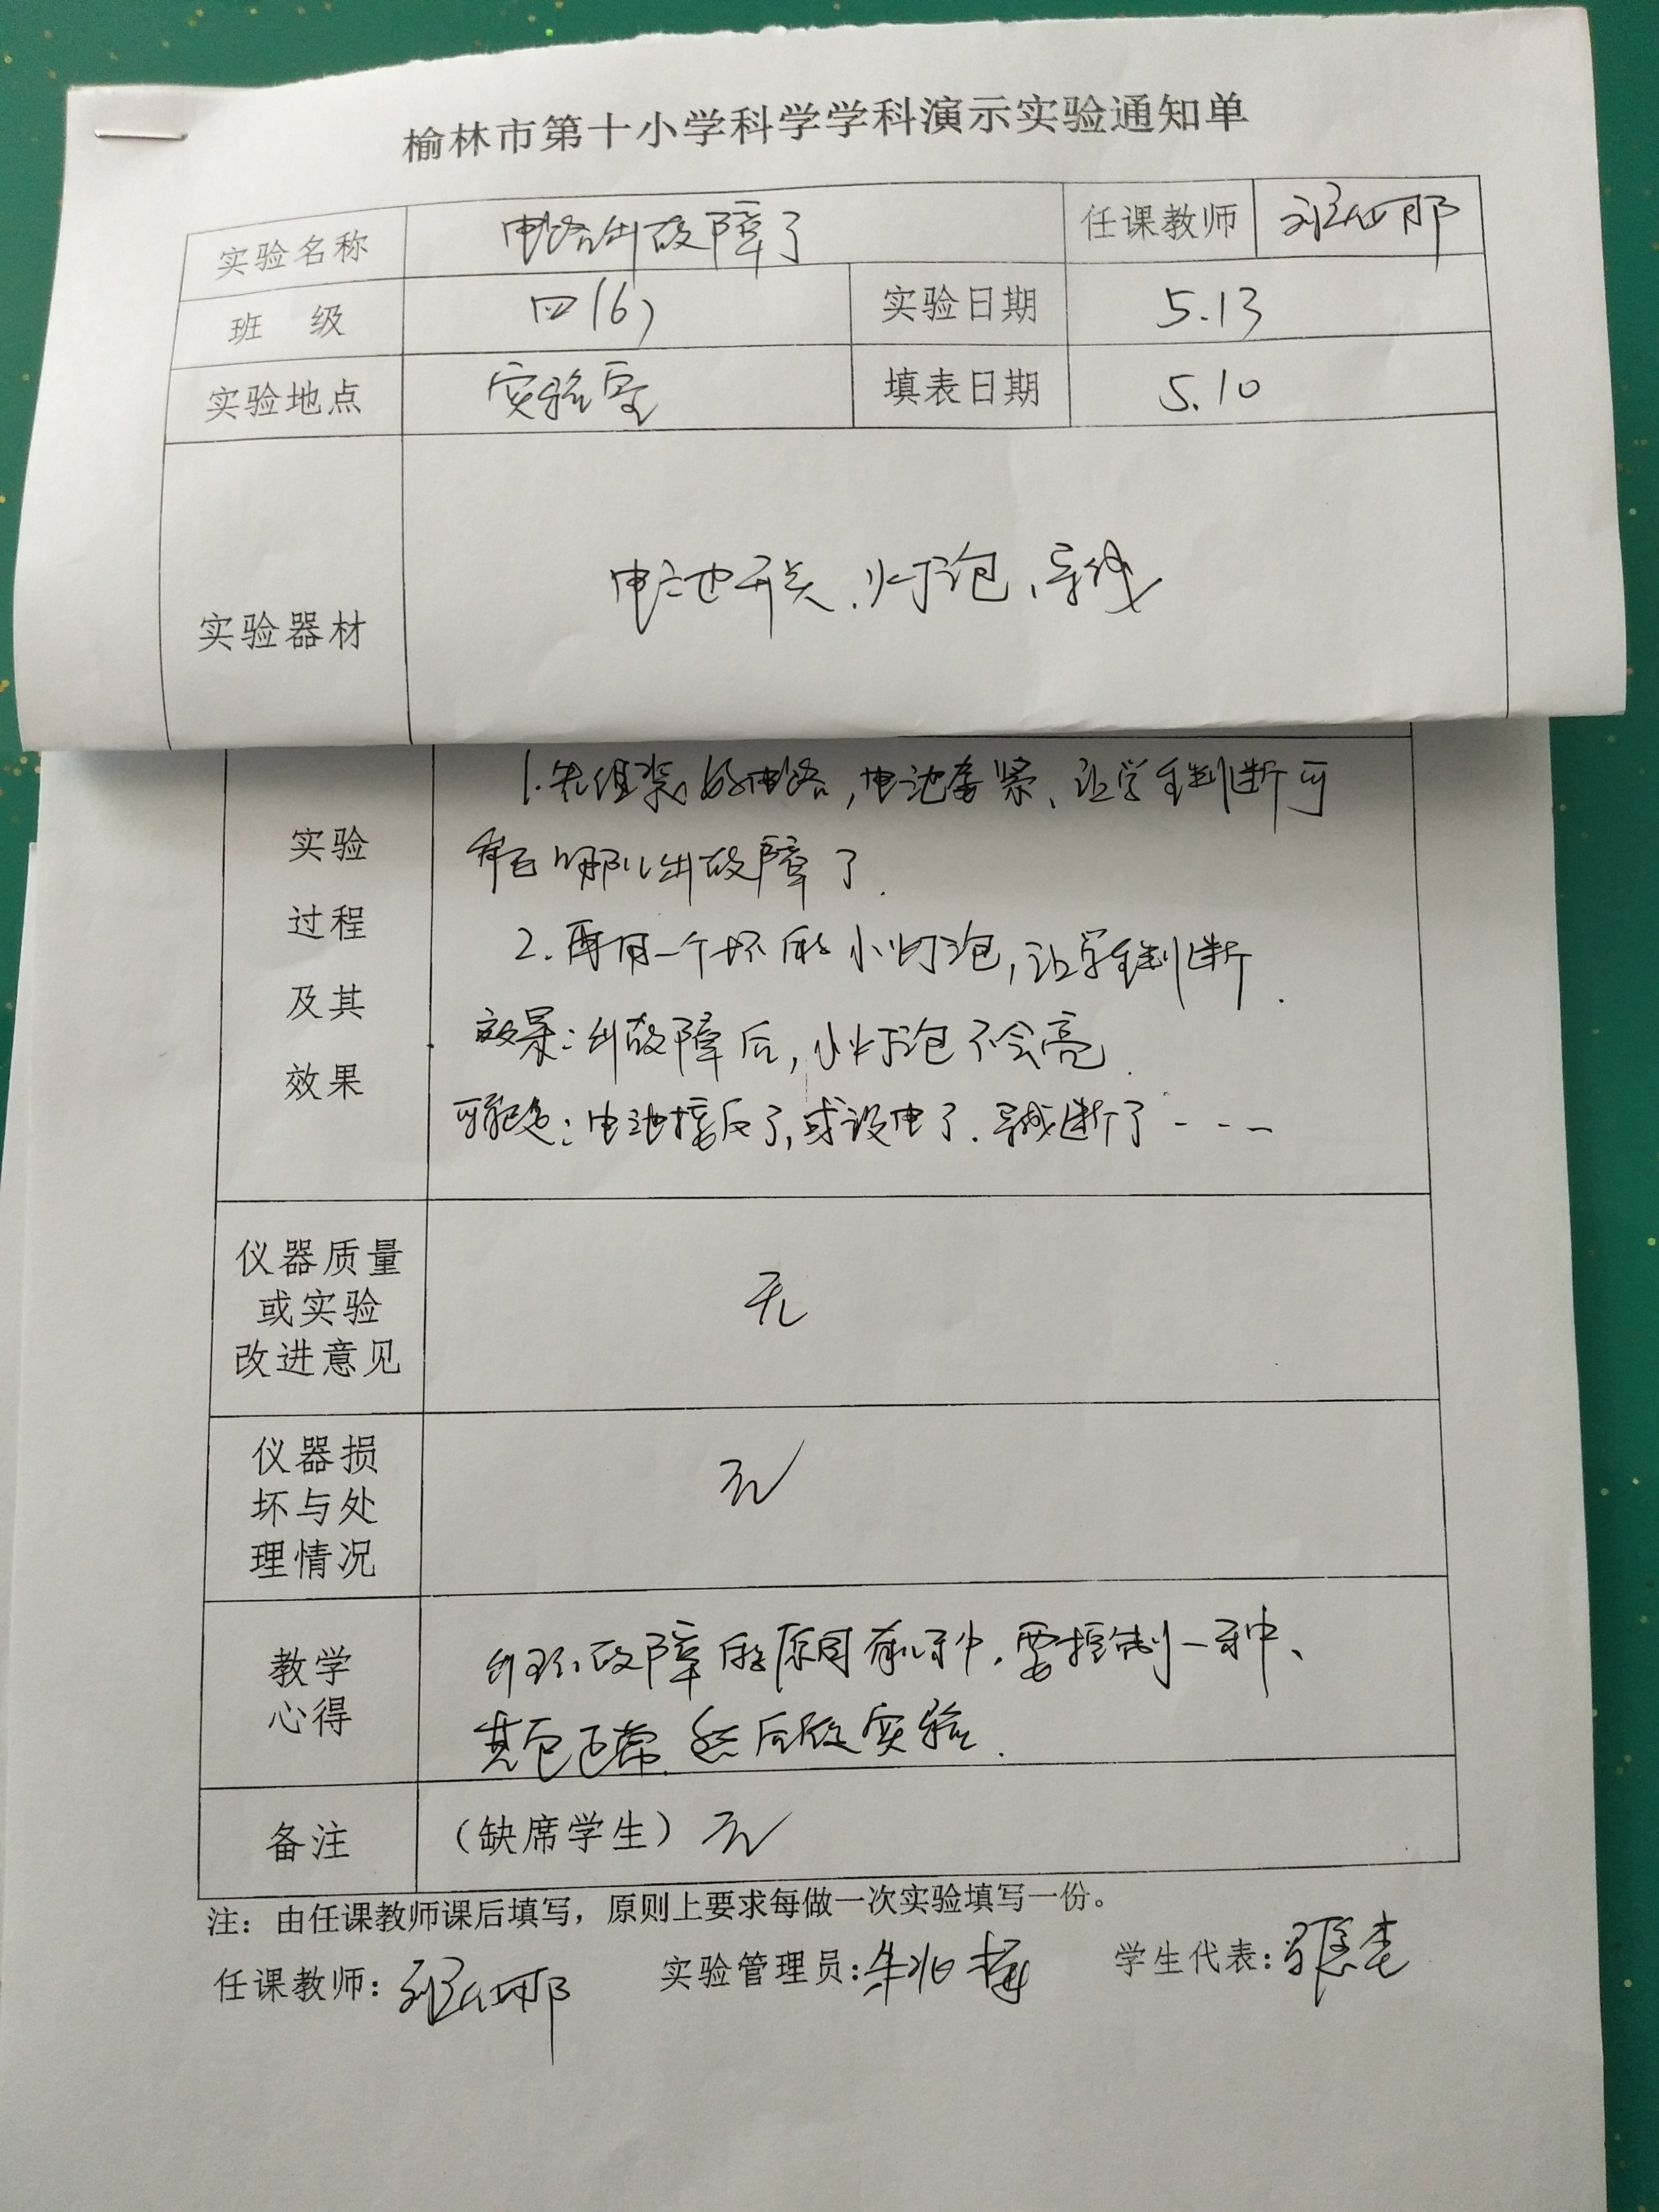 榆林市第十小学科学学科演示实验通知单
实验名称 电路出故障了 任课教师
班 级 四(6) 实验日期 5.13
实验地点 实验室 填表日期 5.10
实验器材 电池开关、灯泡、导线
实验
过程
及其
效果
1.先组装好电路,电池 紧、让学生判断可
能 哪儿出故障了.
2.再用一个坏的小灯泡,让学生判断.
效果:出故障后,小灯泡不会亮.
可能是:电池接反了,或没电了.导线断了---
仪器质量
或实验
改进意见
无
仪器损
坏与处
理情况
无
教学
心得
出现故障的原因有几种.要控制一种、
其它正常.然后做实验.
备注 (缺席学生) 无
注:由任课教师课后填写,原则上要求每做一次实验填写一份。
任课教师: 实验管理员: 学生代表: